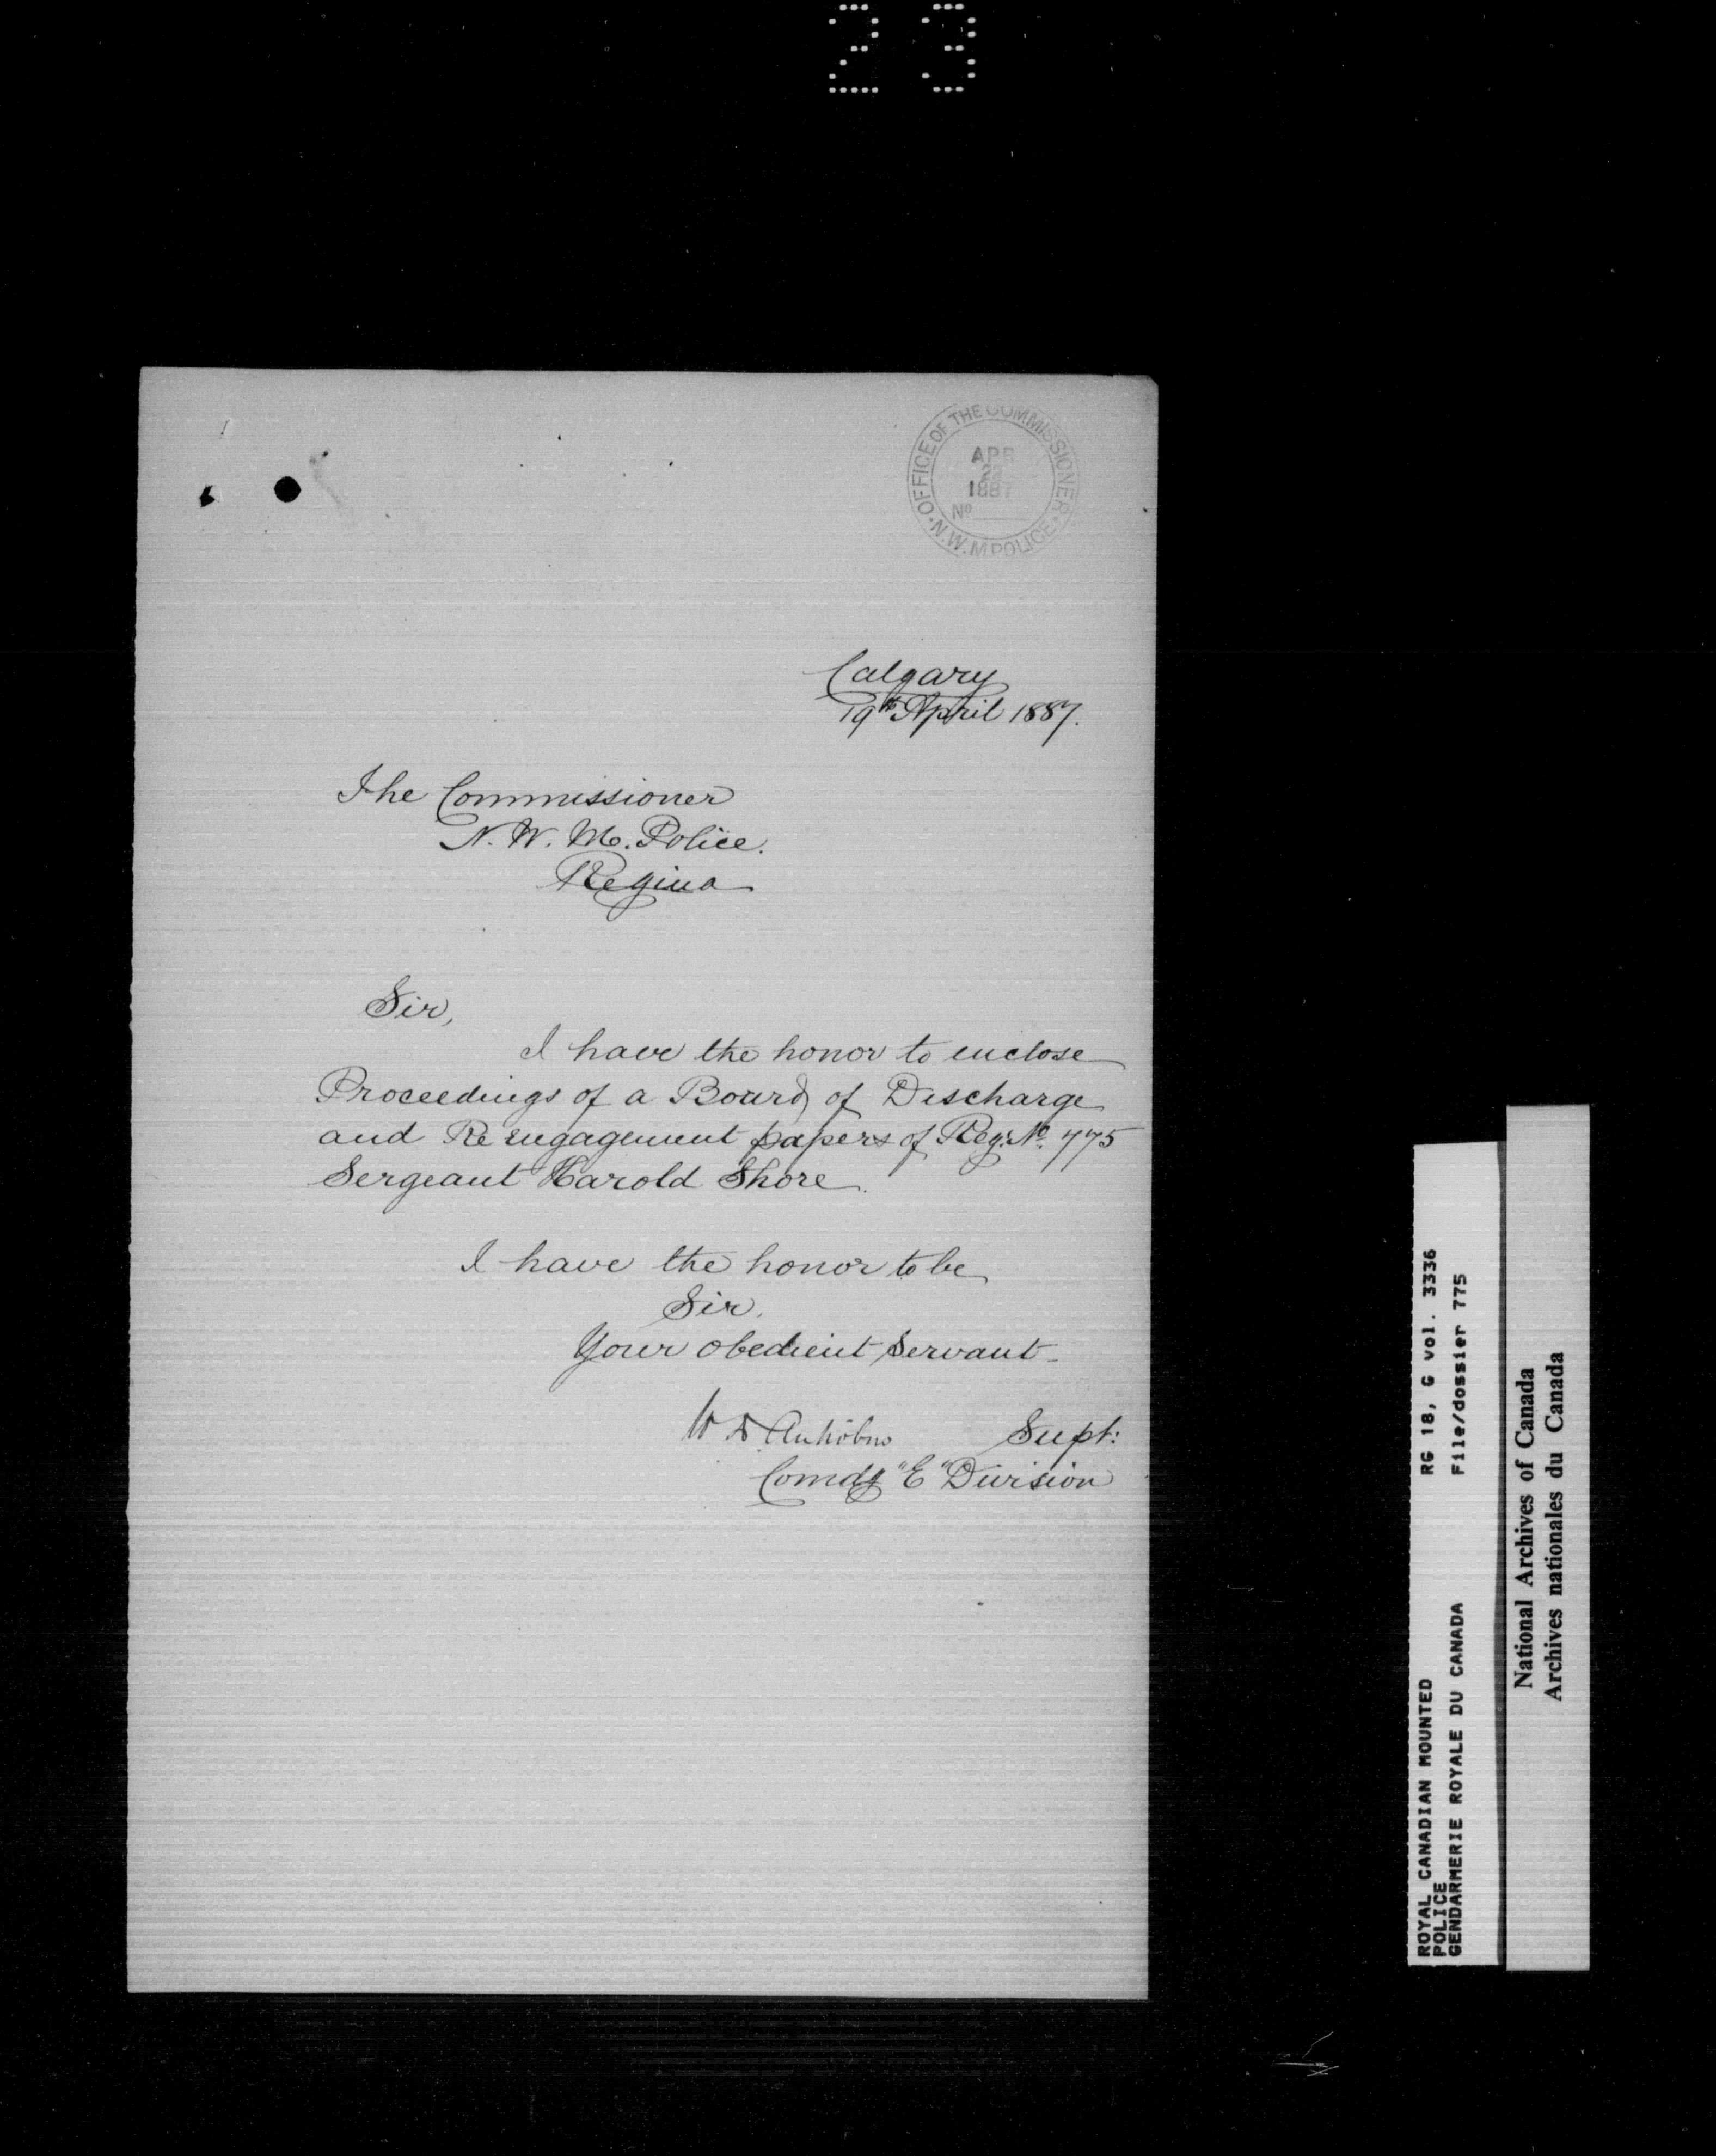 23
OFFICE OF THE COMMISSIONER
APR
22
1887
No
N.W.M. POLICE
Calgary
19th April 1887.
The Commissioner
N. W. M. Police.
Regina
Sir,
I have the honor to enclose
Proceedings of a Board of Discharge
and Re engagement papers of Reg: No. 775
Sergeant Harold Shore.
I have the honor to be
Sir.
Your obedient Servant
W D Antrobus Supt:
Comdg "E" Division
ROYAL CANADIAN MOUNTED RG 18, G vol. 3336
POLICE File/dossier 775
GENDARMERIE ROYALE DU CANADA
National Archives of Canada
Archives nationales du Canada